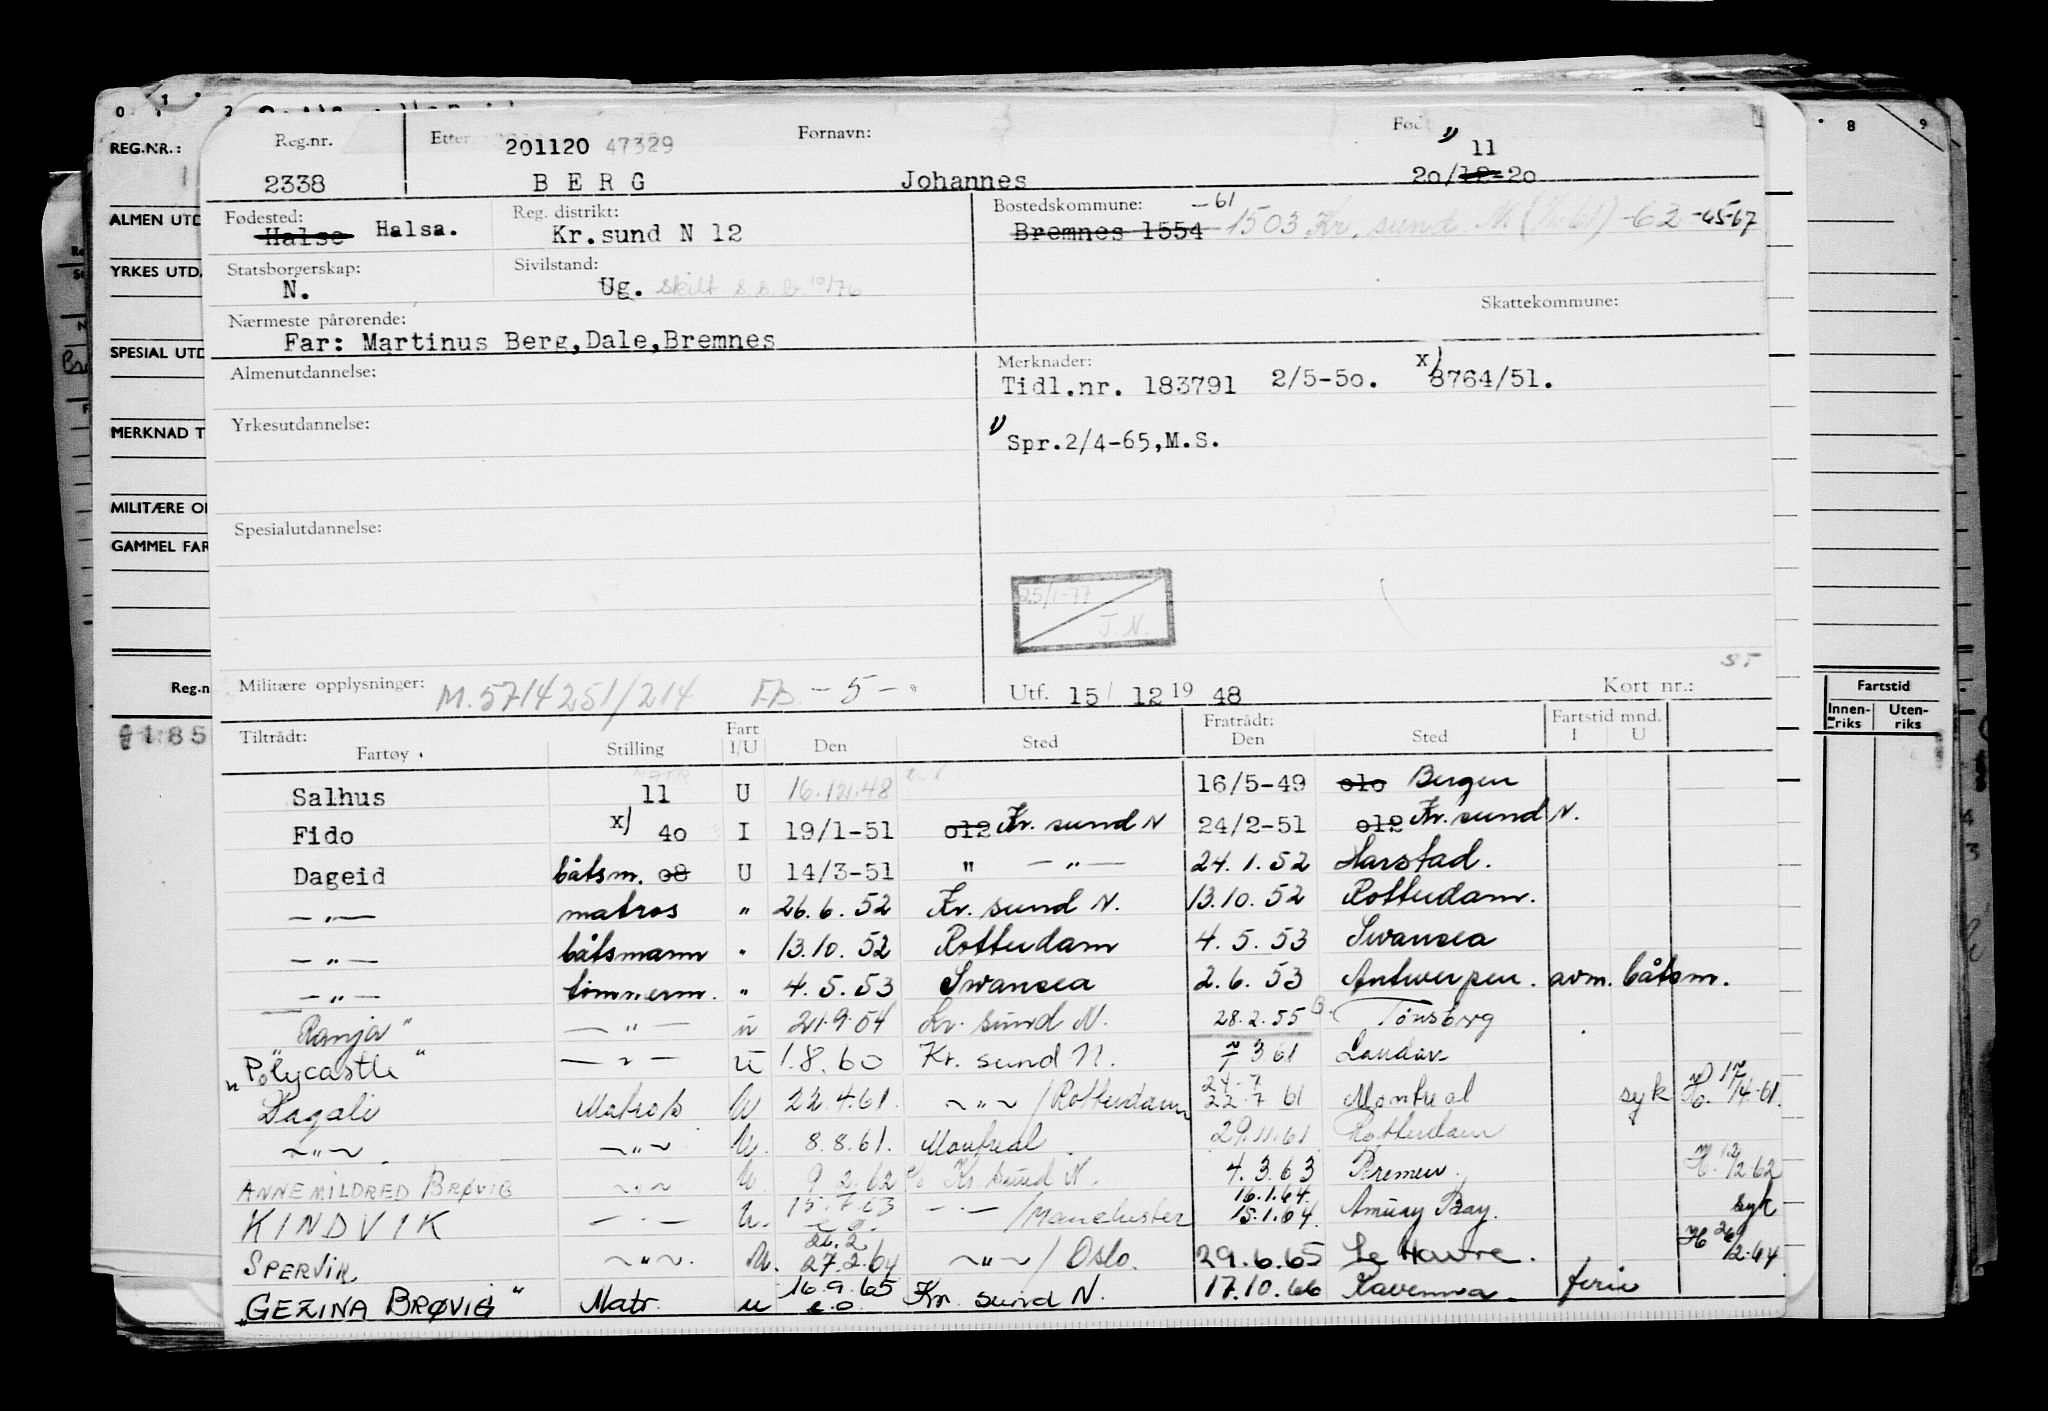 0 1 2 8 9
REG.NR.:
ALMEN UTD
YRKES UTD.
SPESIAL UTD
MERKNAD T
MILITÆRE O
GAMMEL FAR
Reg.n
Fartstid
Innen-riks Uten-riks
Reg.nr. Etter 201120 47329 Fornavn: Fød 1) 11
2338 BERG Johannes 20/12-20
Fødested: Halse Halsa. Reg. distrikt: Kr.sund N 12 Bostedskommune: Bremnes 1554 -61 1503 Kr. sund N -62 -65-67
Statsborgerskap: N. Sivilstand: Ug. skilt s.s.b. 10/76
Skattekommune:
Nærmeste pårørende:
Far: Martinus Berg,Dale,Bremnes
Almenutdannelse: Merknader: x)
Tidl.nr. 183791 2/5-50. 8764/51.
Yrkesutdannelse: 1) Spr.2/4-65,M.S.
Spesialutdannelse:
25/1-77
J.N.
ST
Militære opplysninger: M.5714251/214 F.B. -5- Utf. 15/ 12 19 48 Kort nr.:
Tiltrådt: Fartøy Stilling Fart I/U Den Sted Fratrådt: Den Sted Fartstid mnd. I U
Salhus 11 U 16.12.48 16/5-49 010 Bergen
Fido x) 40 I 19/1-51 012 Kr. sund N 24/2-51 012 Kr. sund N.
Dageid båtsm. 08 U 14/3-51 " — " — 24.1.52 Harstad.
— " — matros " 26.6.52 Kr. sund N. 13.10.52 Rotterdam.
— " — båtsmann " 13.10.52 Rotterdam 4.5.53 Swansea
— " — timmerm. " 4.5.53 Swansea 2.6.53 Antwerpen. avm. båtsm.
"Ranja" — " — u 21.9.54 Kr. sund N. 28.2.55 B. Tønsberg
"Polycastle" — " — u 1.8.60 Kr. sund N. 3 61
Dagali Matros U 22.4.61. ~ " ~ /Rotterdam 24.7 22.7 61 Montreal syk 17/4-61.
~ " ~ ~ " ~ U. 8.8.61. Montreal 29.11.61 Rotterdam
ANNE MILDRED BRØVIG ~ " ~ U. 9 2.62 Kr sund N. 4.3.63 Bremen. 12/2-62
KINDVIK — " — U. 15.7.63 — " — /Manchester 16.1.64. 15.1.64. Amuay Bay. syk
SPERVIK ~ " ~. U. 26.2. 27.2.64 ~ " ~ / Oslo. 29.6.65 Le Havre. 26/2-64
"GEZINA BRØVIG" Matr. u 16.9.65 e.o. Kr. sund N. 17.10.66 Ravenna. ferie